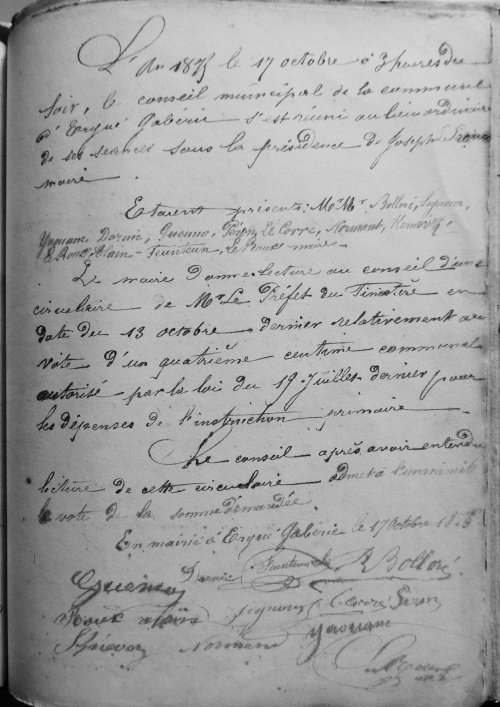 L'an 1875 le 17 octobre à 3 heures du
soir, le conseil municipal de la commune
d'Ergué Gabéric s'est réuni au lieu ordinaire
de ses séances sous la présidence de Joseph Le Roux
maire.
Etaient présents: M.M.rs Bolloré, Signour,
Yaouanc, Dornic, Gueuno, Péron, Le Corre, Normant,
Le Roux Alain - Feunteun, Le Roux maire.
Le maire donne lecture au conseil d'une
circulaire de Mr Le Préfet du Finistère en
date du 13 octobre dernier relativement au
vote d'un quatrième centime communal
autorisé par la loi du 19 Juillet dernier pour
les dépenses de l'instruction primaire.
Le conseil après avoir entendu
lecture de cette circulaire admet à l'unanimité
le vote de la somme demandée.
En mairie à Ergué Gabéric le 17 Octobre 1875
Dornic Feunteun R Bolloré
Gueuno
Roux alain Signour Le Corre
Normand Yaouanc
Le Roux